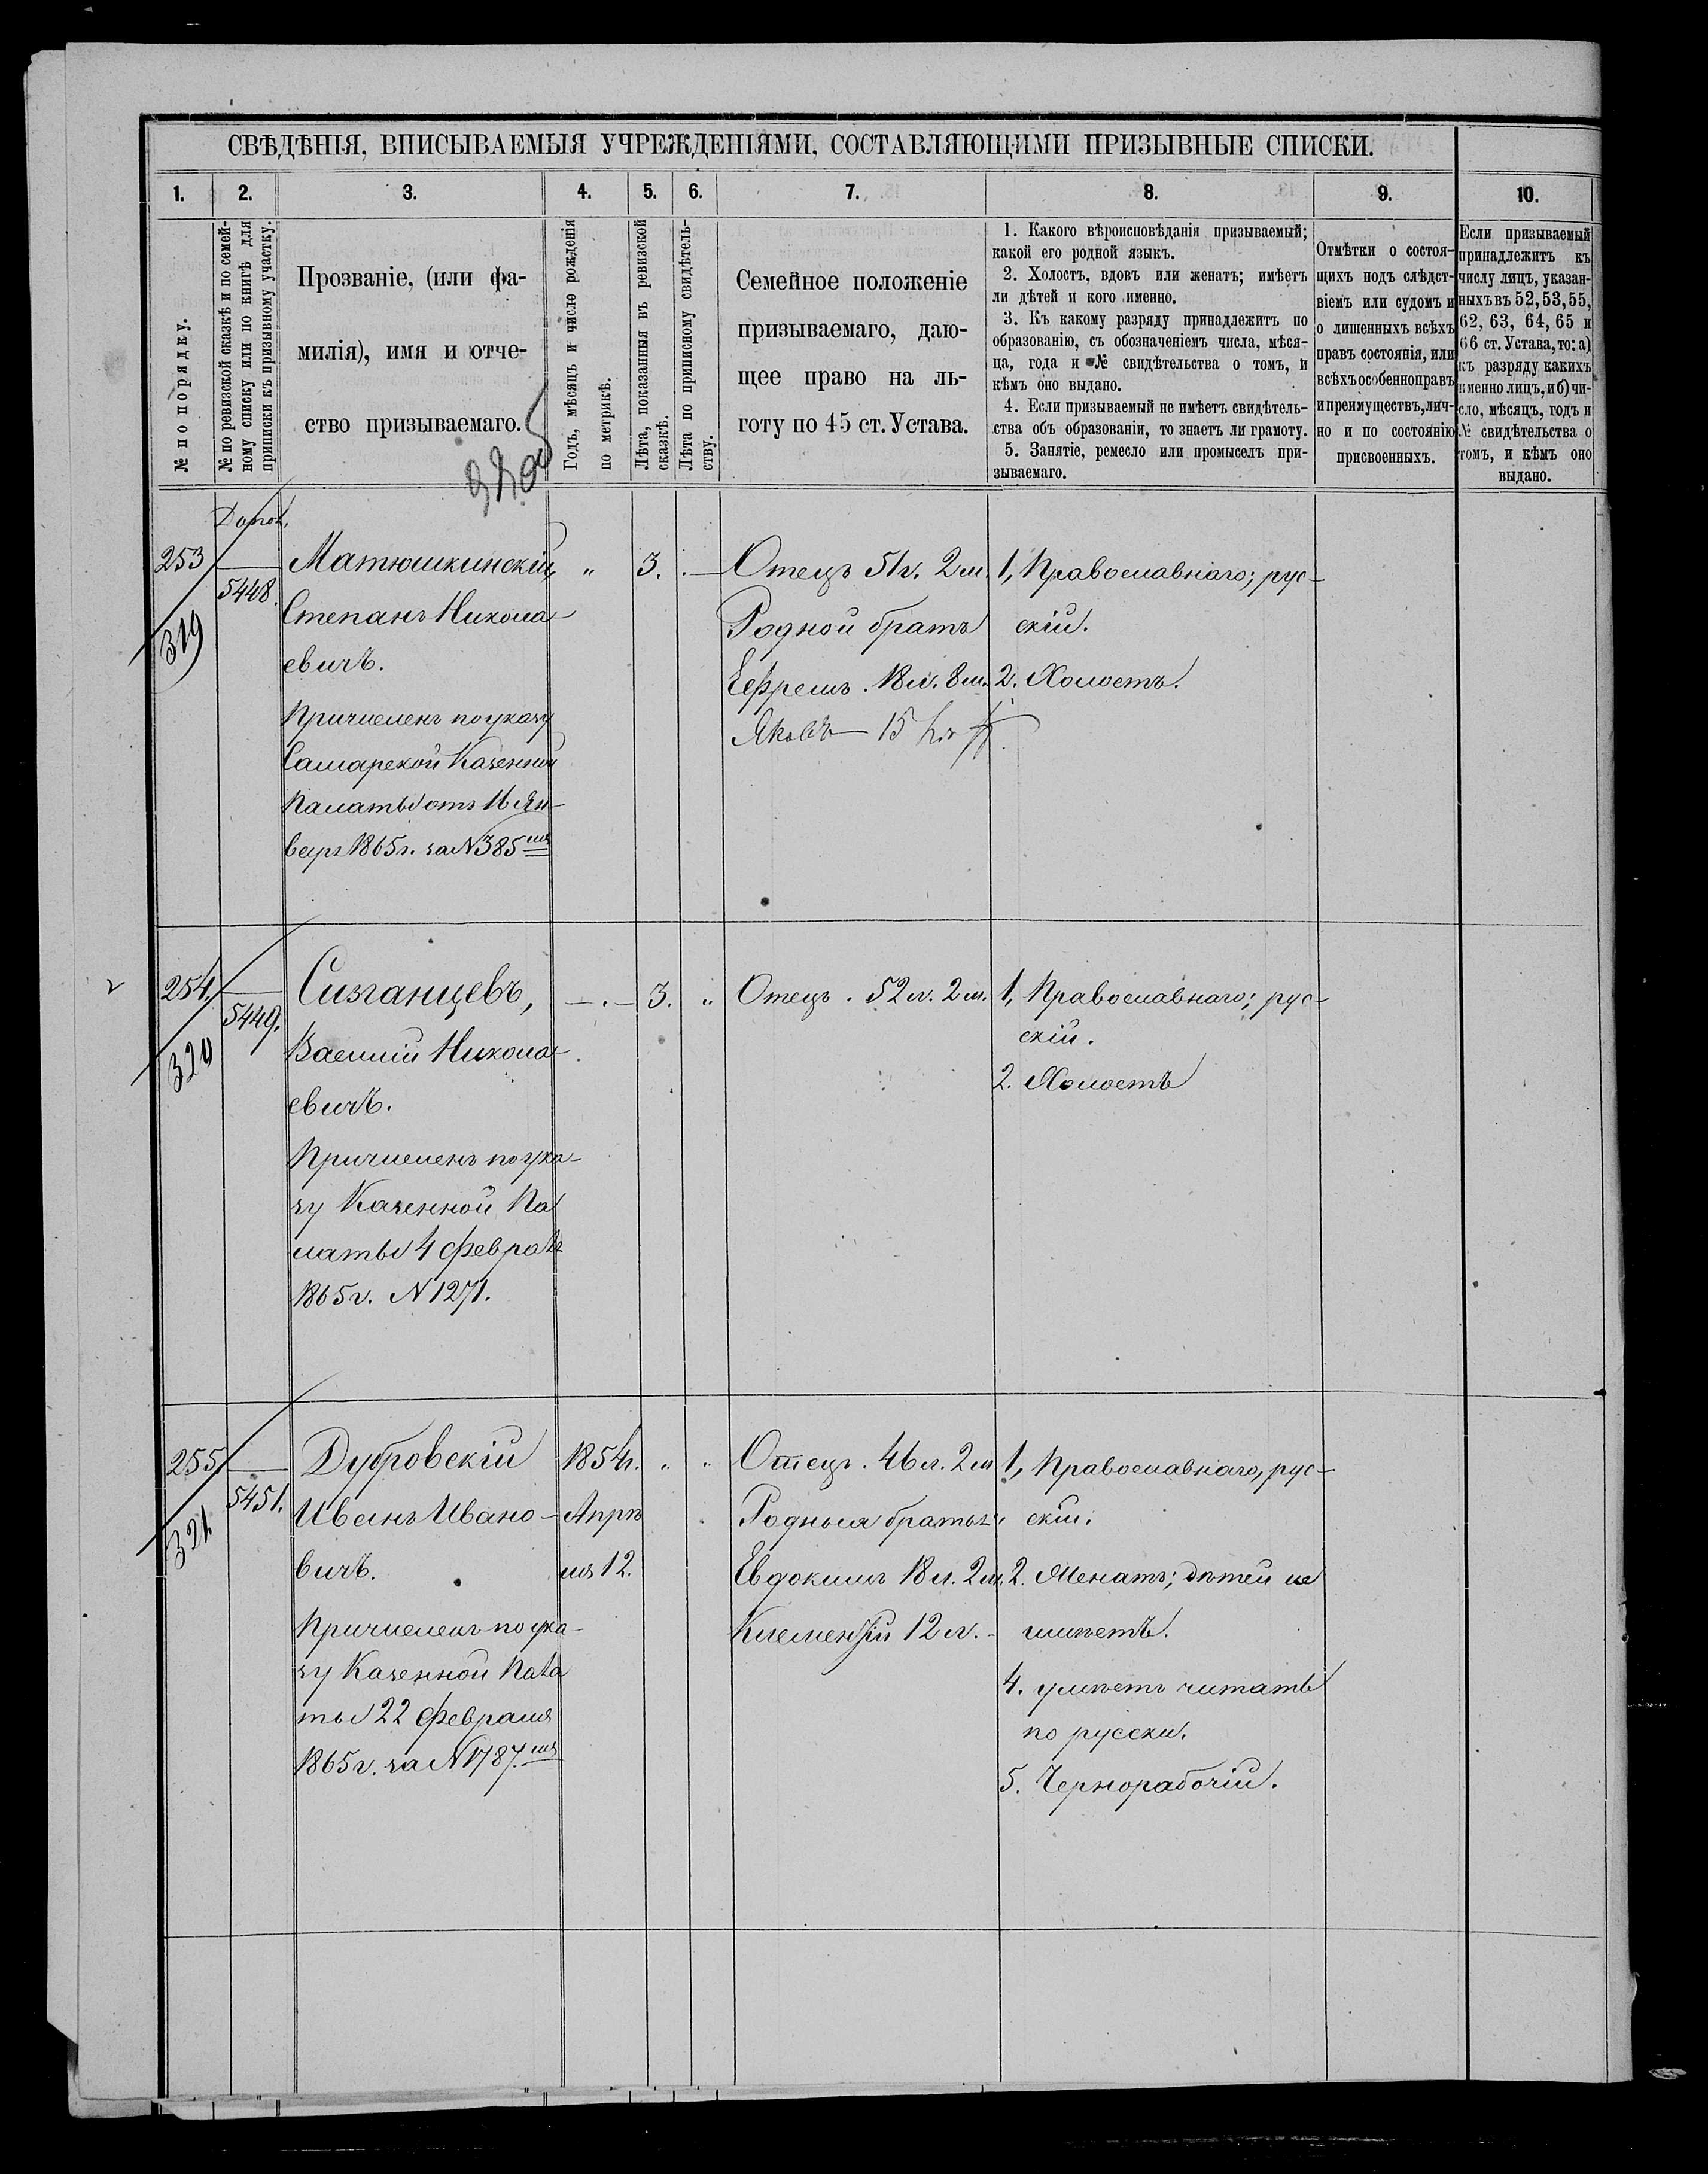 СВѢДѢНІЯ, ВПИСЫВАЕМЫЯ УЧРЕЖДЕНІЯМИ, СОСТАВЛЯЮЩИМИ ПРИЗЫВНЫЕ СПИСКИ.
1. 2. 3. 4. 5. 6. 7. 8. 9. 10.
№ по порядку.
№ по ревизской сказкѣ и по семей-
ному списку или по книгѣ для
приписки къ призывному участку.
Прозваніе, (или фа-
милія), имя и отче-
ство призываемаго.
Годъ, мѣсяцъ и число рожденія
по метрикѣ.
Лѣта, показанныя въ ревизской
сказкѣ.
Лѣта по приписному свидѣтель-
ству.
Семейное положеніе
призываемаго, даю-
щее право на ль-
готу по 45 ст. Устава.
1. Какого вѣроисповѣданія призываемый;
какой его родной языкъ.
2. Холостъ, вдовъ или женатъ; имѣетъ
ли дѣтей и кого именно.
3. Къ какому разряду принадлежитъ по
образованію, съ обозначеніемъ числа, мѣся-
ца, года и № свидѣтельства о томъ, и
кѣмъ оно выдано.
4. Если призываемый не имѣетъ свидѣтель-
ства объ образованіи, то знаетъ ли грамоту.
5. Занятіе, ремесло или промыселъ при-
зываемаго.
Отмѣтки о состоя-
щихъ подъ слѣдст-
віемъ или судомъ и
о лишенныхъ всѣхъ
правъ состоянія, или
всѣхъ особенно правъ
и преимуществъ, лич-
но и по состоянію
присвоенныхъ.
Если призываемый
принадлежитъ къ
числу лицъ, указан-
ныхъ въ 52, 53, 55,
62, 63, 64, 65 и
66 ст. Устава, то: а)
къ разряду какихъ
именно лицъ, и б) чи-
сло, мѣсяцъ, годъ и
№ свидѣтельства о
томъ, и кѣмъ оно
выдано.
253
319
5448.
Матюшкинскій,
Степанъ Никола-
евичъ.
Причисленъ по указу
Самарской Казенной
Палаты отъ 16 Ян-
варя 1865 г. за N 385 мъ
„ 3. —
Отецъ 51 г. 2 м.
Родной братъ
Ефремъ. 18 л. 8 м.
Яковъ — 15 л.
1, Православнаго; рус-
скій.
2. Холостъ.
254.
320
5449.
Сизганцевъ,
Василій Никола-
евичъ.
Причисленъ по ука-
зу Казенной Па
латы 4 февраля
1865 г. N 1271.
— . — 3. „
Отецъ. 52 л. 2 м.
1, Православнаго; рус-
скій.
2. Холостъ
255
321.
5451.
Дубровскій
Иванъ Ивано-
вичъ.
Причисленъ по ука-
зу Казенной Пала
ты 22 февраля
1865 г. за N 1787. мъ
1854 г.
Апрѣ
ля 12.
„ „
Отецъ. 46 л. 2 м
Родные братья
Евдокимъ 18 л. 2 м.
Климентій 12 л. -
1, Православнаго, рус-
скій.
2. Женатъ; дѣтей не
имѣетъ.
4. умѣетъ читать
по русски.
5. Чернорабочій.